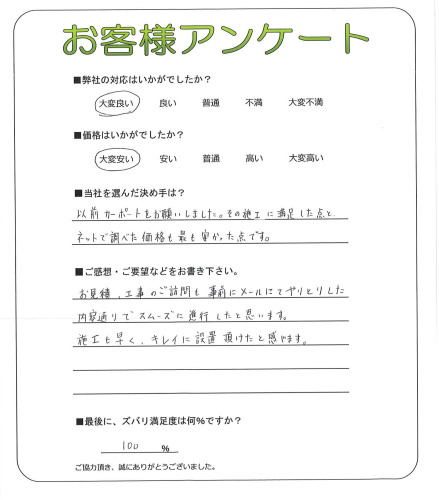 お客様アンケート
■弊社の対応はいかがでしたか？
大変良い 良い 普通 不満 大変不満
■価格はいかがでしたか？
大変安い 安い 普通 高い 大変高い
■当社を選んだ決め手は？
以前カーポートをお願いしました。その施工に満足した点と、
ネットで調べた価格も最も安かった点です。
■ご感想・ご要望などをお書き下さい。
お見積、工事のご訪問も事前にメールにてやりとりした
内容通りでスムーズに進行したと思います。
施工も早く、キレイに設置頂けたと感じます。
■最後に、ズバリ満足度は何％ですか？
100 ％
ご協力頂き、誠にありがとうございました。